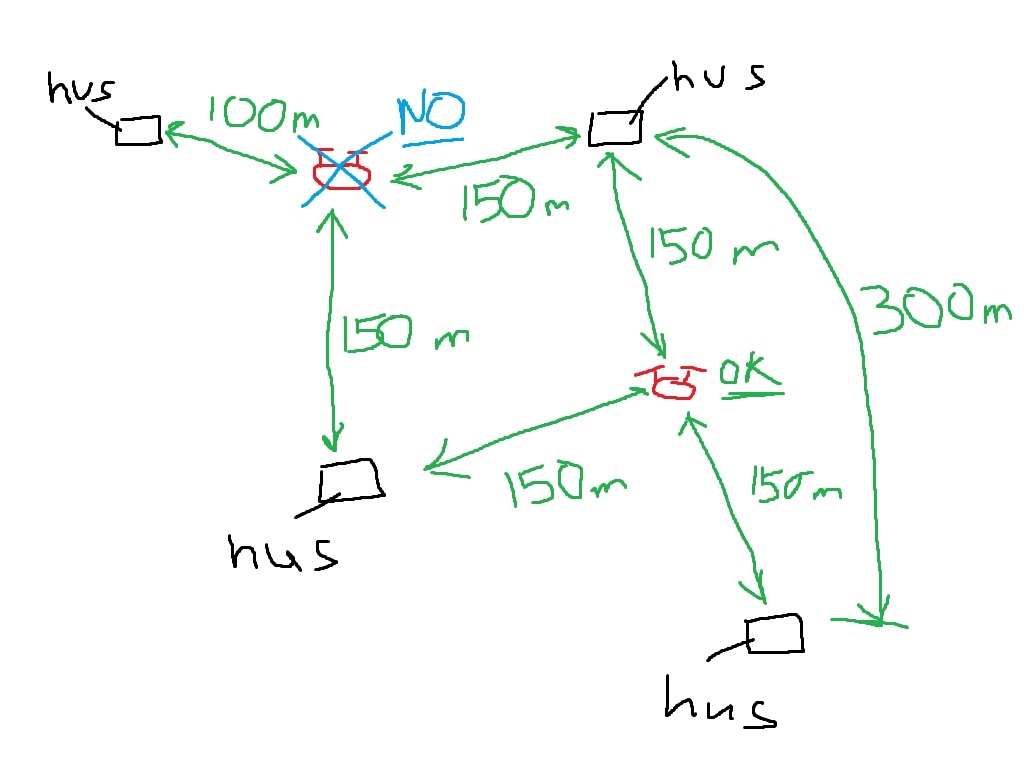 hus
100m
NO
hus
150m
150 m
300m
150 m
OK
150m
150m
hus
hus